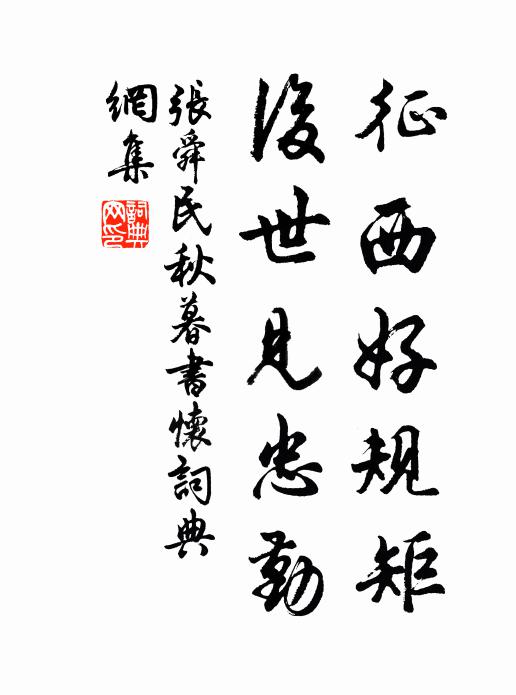 征西好規矩
後世見忠勤
張舜民秋暮書懷詞典
網集
詞典
网印